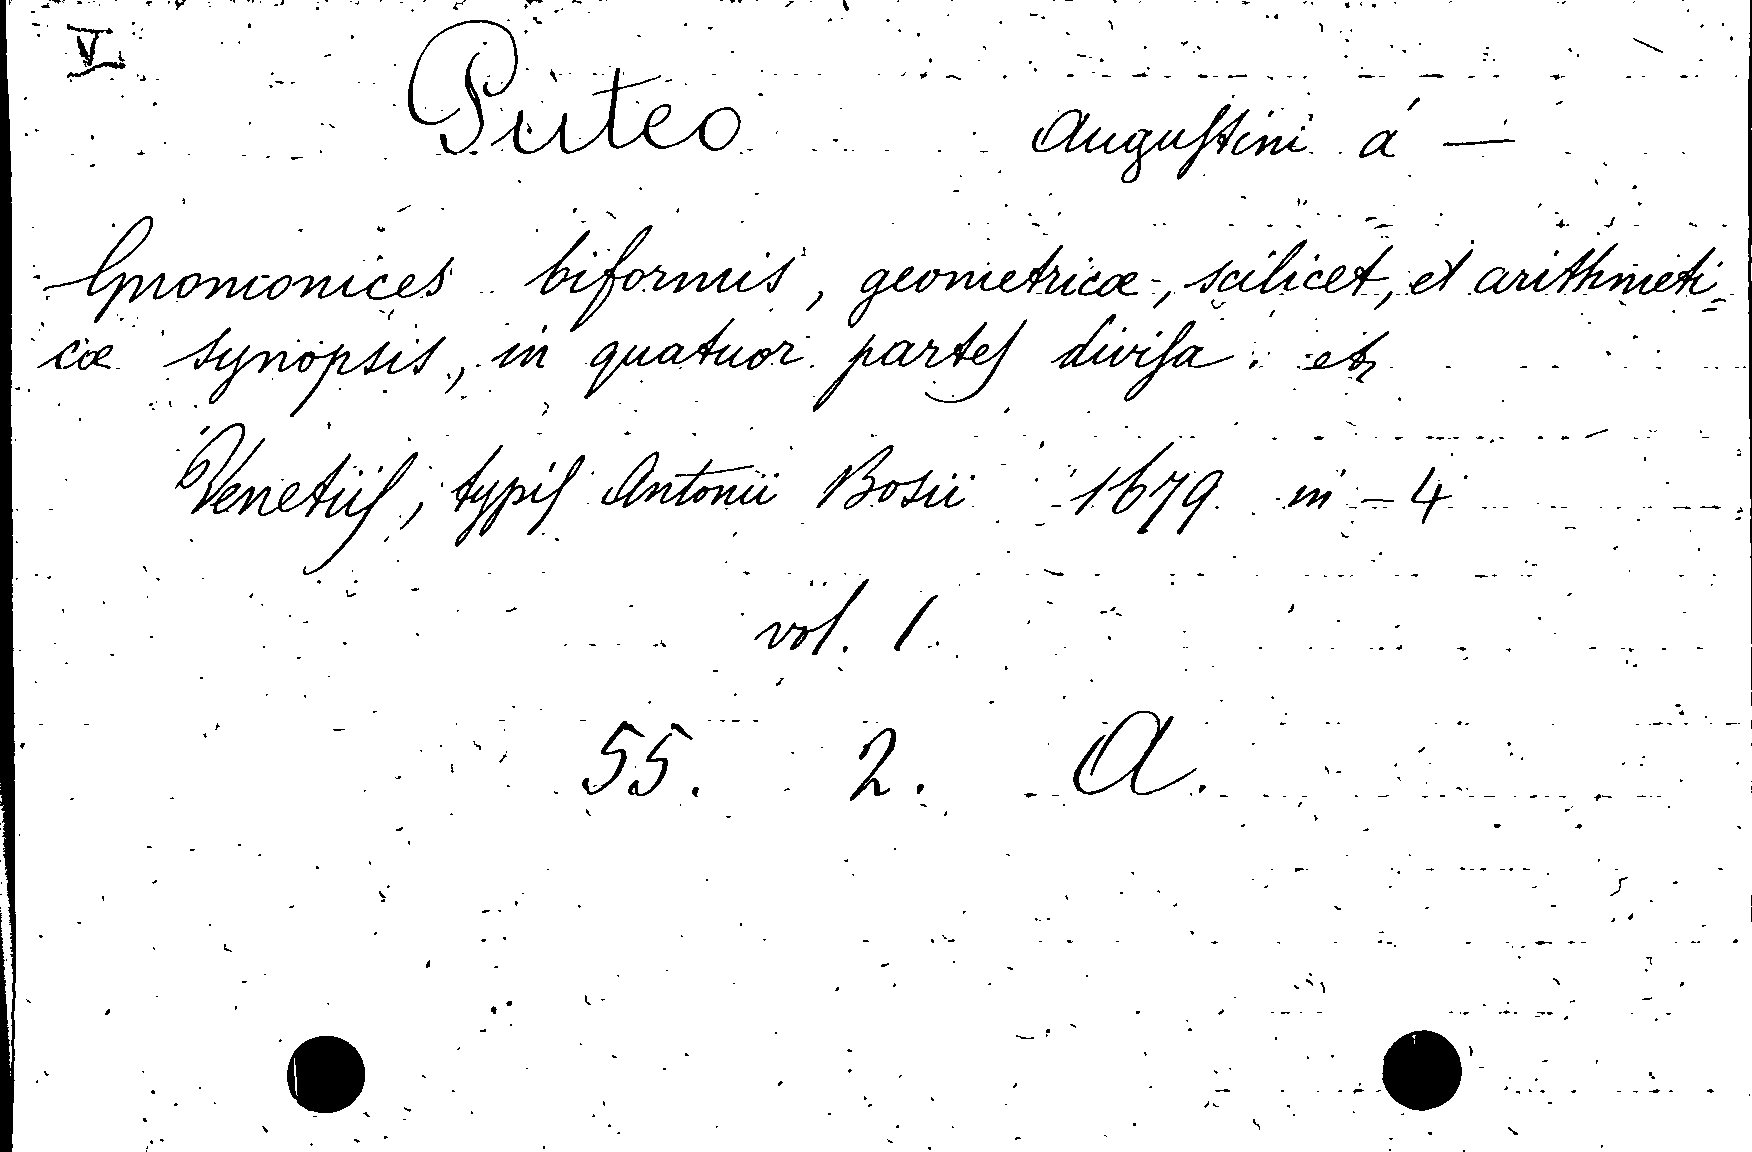 V
Puteo Augustini á —
Gnomonices biformis, geometricæ, scilicet, et arithmeti=
cæ synopsis, in quatuor partes divisa. etc
Venetiis, typis Antonii Bosii 1679 in-4
vol. 1.
55. 2. A.